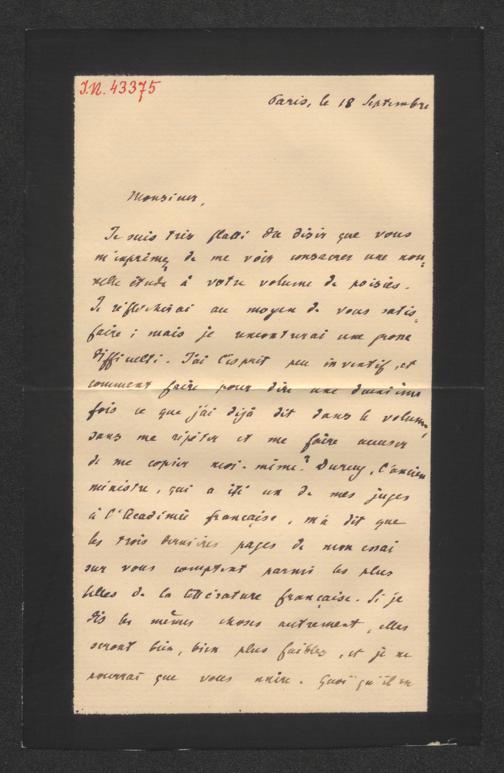 I.N. 43375
Paris, le 18 Septembre
Monsieur,
Je suis très flatté du désir que vous
m'exprimez de me voir consacrer une nou-
velle étude à votre volume de poésies.
Je réfléchirai au moyen de vous satis-
faire ; mais je rencontrerai une grave
difficulté. J'ai l'esprit peu inventif, et
comment faire pour dire une deuxième
fois ce que j'ai déjà dit dans le volume,
sans me répéter et me faire accuser
de me copier moi-même ? Duruy, l'ancien
ministre, qui a été un de mes juges
à l'Académie française, m'a dit que
les trois dernières pages de mon essai
sur vous comptent parmi les plus
belles de la littérature française. Si je
dis les mêmes choses autrement, elles
seront bien, bien plus faibles, et je ne
pourrai que vous nuire. Quoi qu'il en